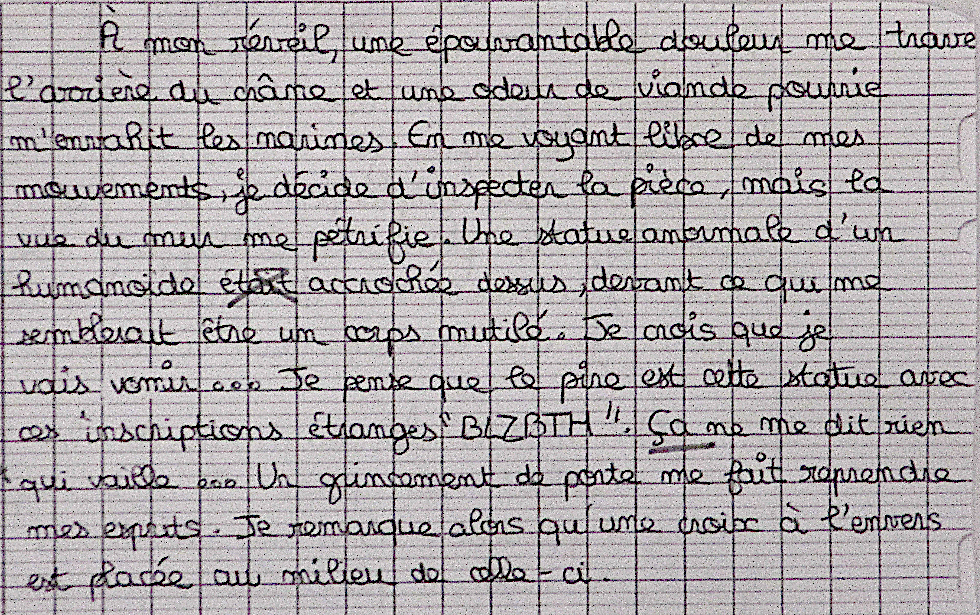 À mon réveil, une épouvantable douleur me trave
l'arrière du crâne et une odeur de viande pourrie
m'envahit les narines. En me voyant libre de mes
mouvements, je décide d'inspecter la pièce, mais la
vue du mur me pétrifie. Une statue anormale d'un
humanoïde était accrochée dessus, devant ce qui me
semblerait être un corps mutilé. Je crois que je
vais vomir... Je pense que le pire est cette statue avec
ces inscriptions étranges "BIZBTH". Ça ne me dit rien
qui vaille... Un grincement de porte me fait reprendre
mes esprits. Je remarque alors qu'une croix à l'envers
est placée au milieu de celle-ci.